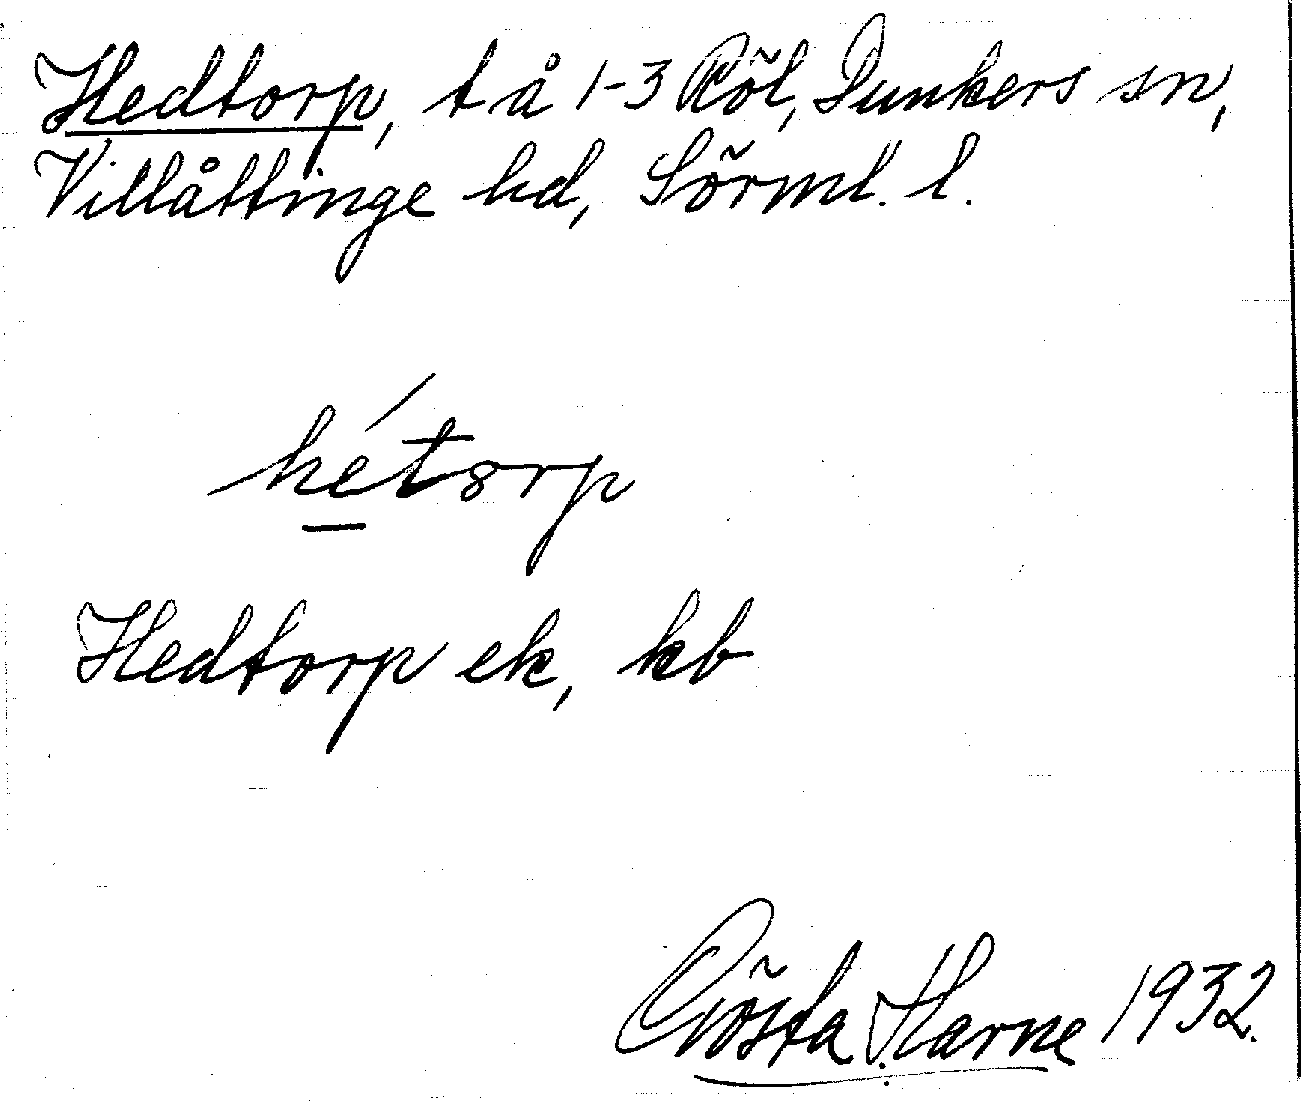 Hedtorp, t å 1-3 Röl, Dunkers sn,
Villåttinge hd, Sörml. l.
hétorp
Hedtorp ek, kb
Gösta Harne 1932.